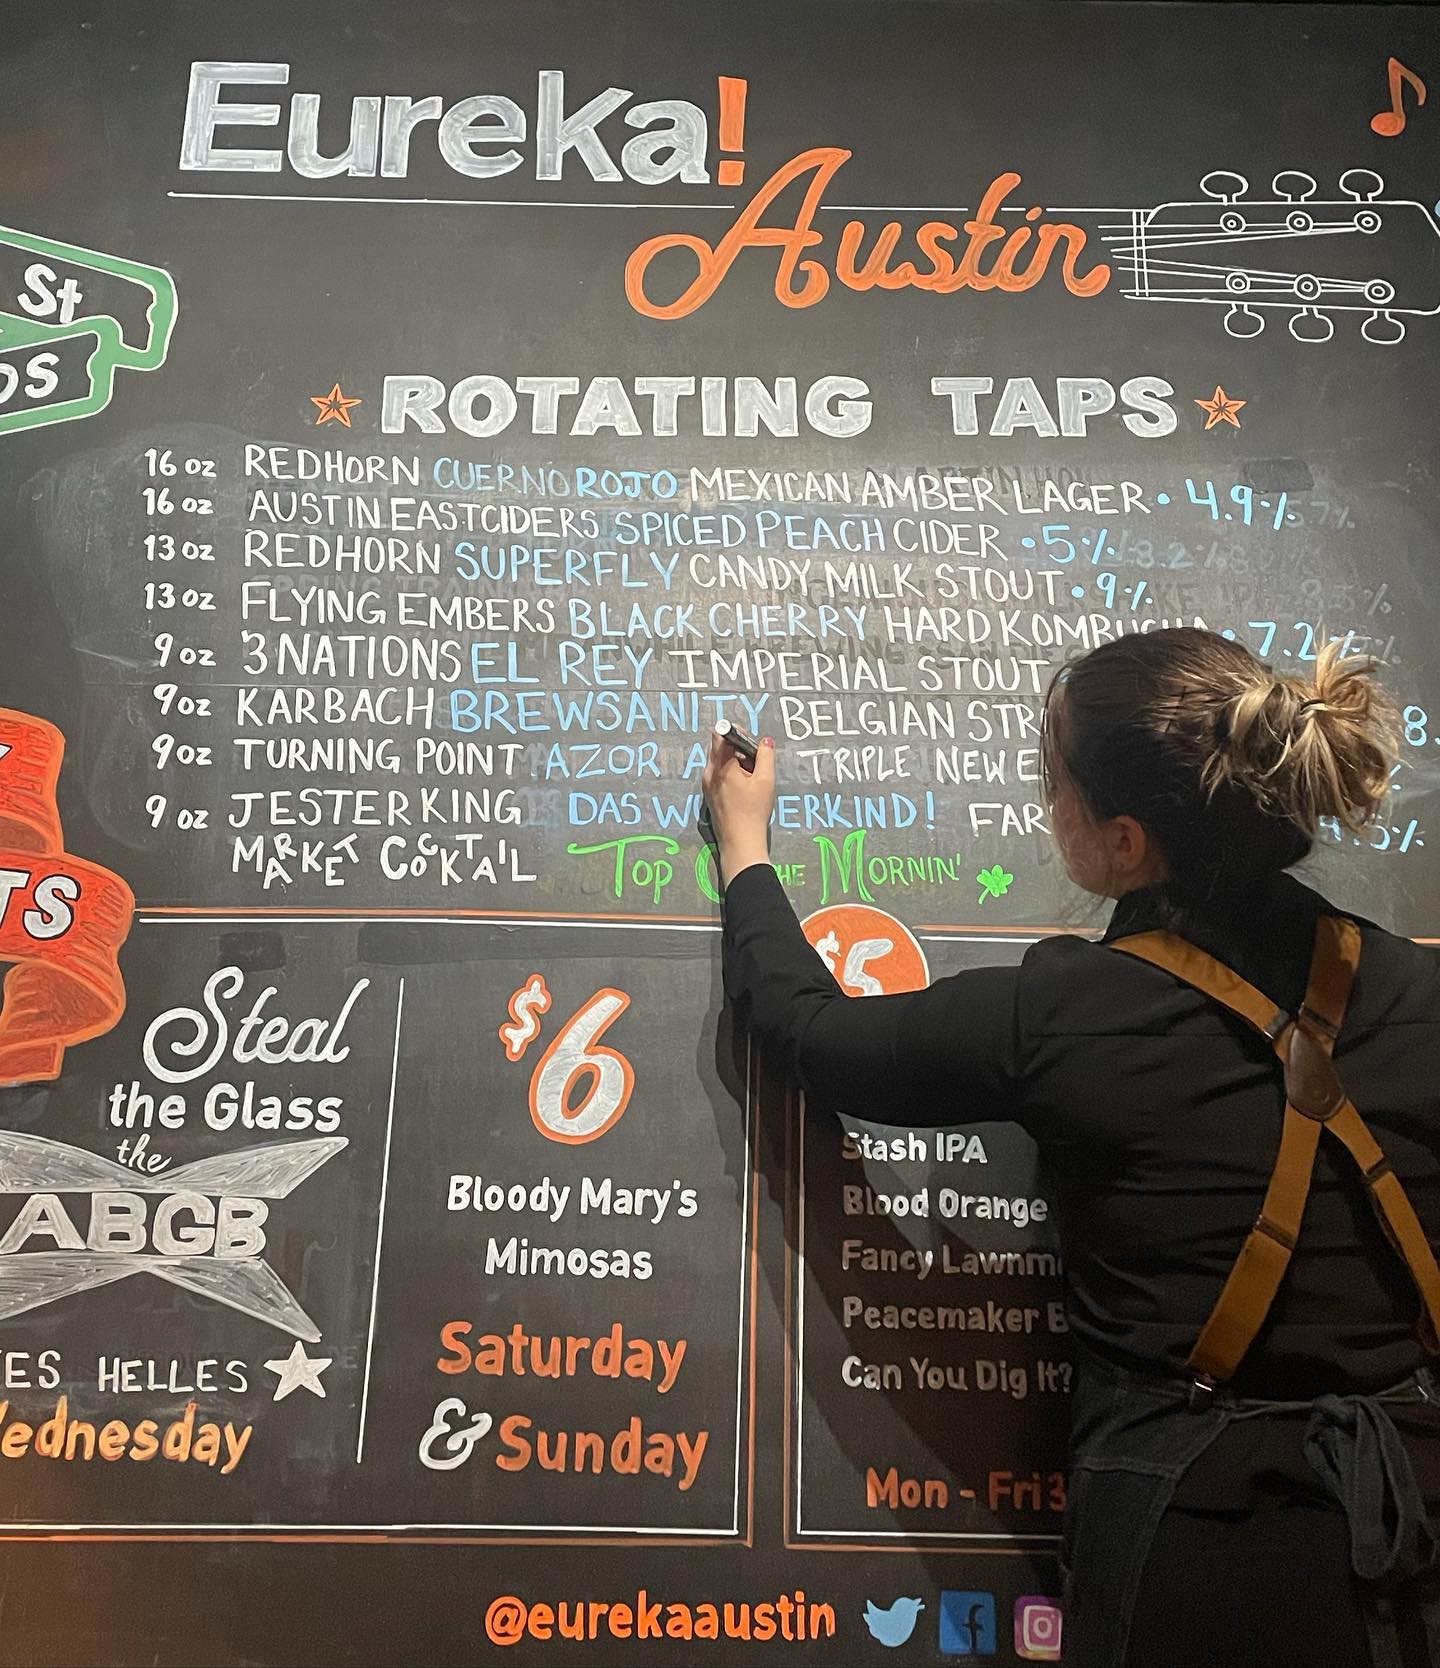 Eureka!
Austin
St
ROTATING TAPS
16 oz REDHORN CUERNO ROJO MEXICAN AMBER LAGER • 4.9%
16 oz AUSTIN EASTCIDERS SPICED PEACH CIDER • 5%
13 oz REDHORN SUPERFLY CANDY MILK STOUT • 9%
13 oz FLYING EMBERS BLACK CHERRY HARD KOMBUCHA • 7.2%
9 oz 3 NATIONS EL REY IMPERIAL STOUT
9 oz KARBACH BREWSANITY BELGIAN STR 8.
9 oz TURNING POINT AZOR A TRIPLE NEW E %
9 oz JESTER KING DAS WUNDERKIND! FAR .5%
MARKET COCKTAIL TOP O THE MORNIN'
TS
Steal
the Glass
the
ABGB
ES HELLES
Wednesday
$6
Bloody Mary's
Mimosas
Saturday
& Sunday
$5
Stash IPA
Blood Orange
Fancy Lawnm
Peacemaker E
Can You Dig It?
Mon - Fri 3
@eurekaaustin